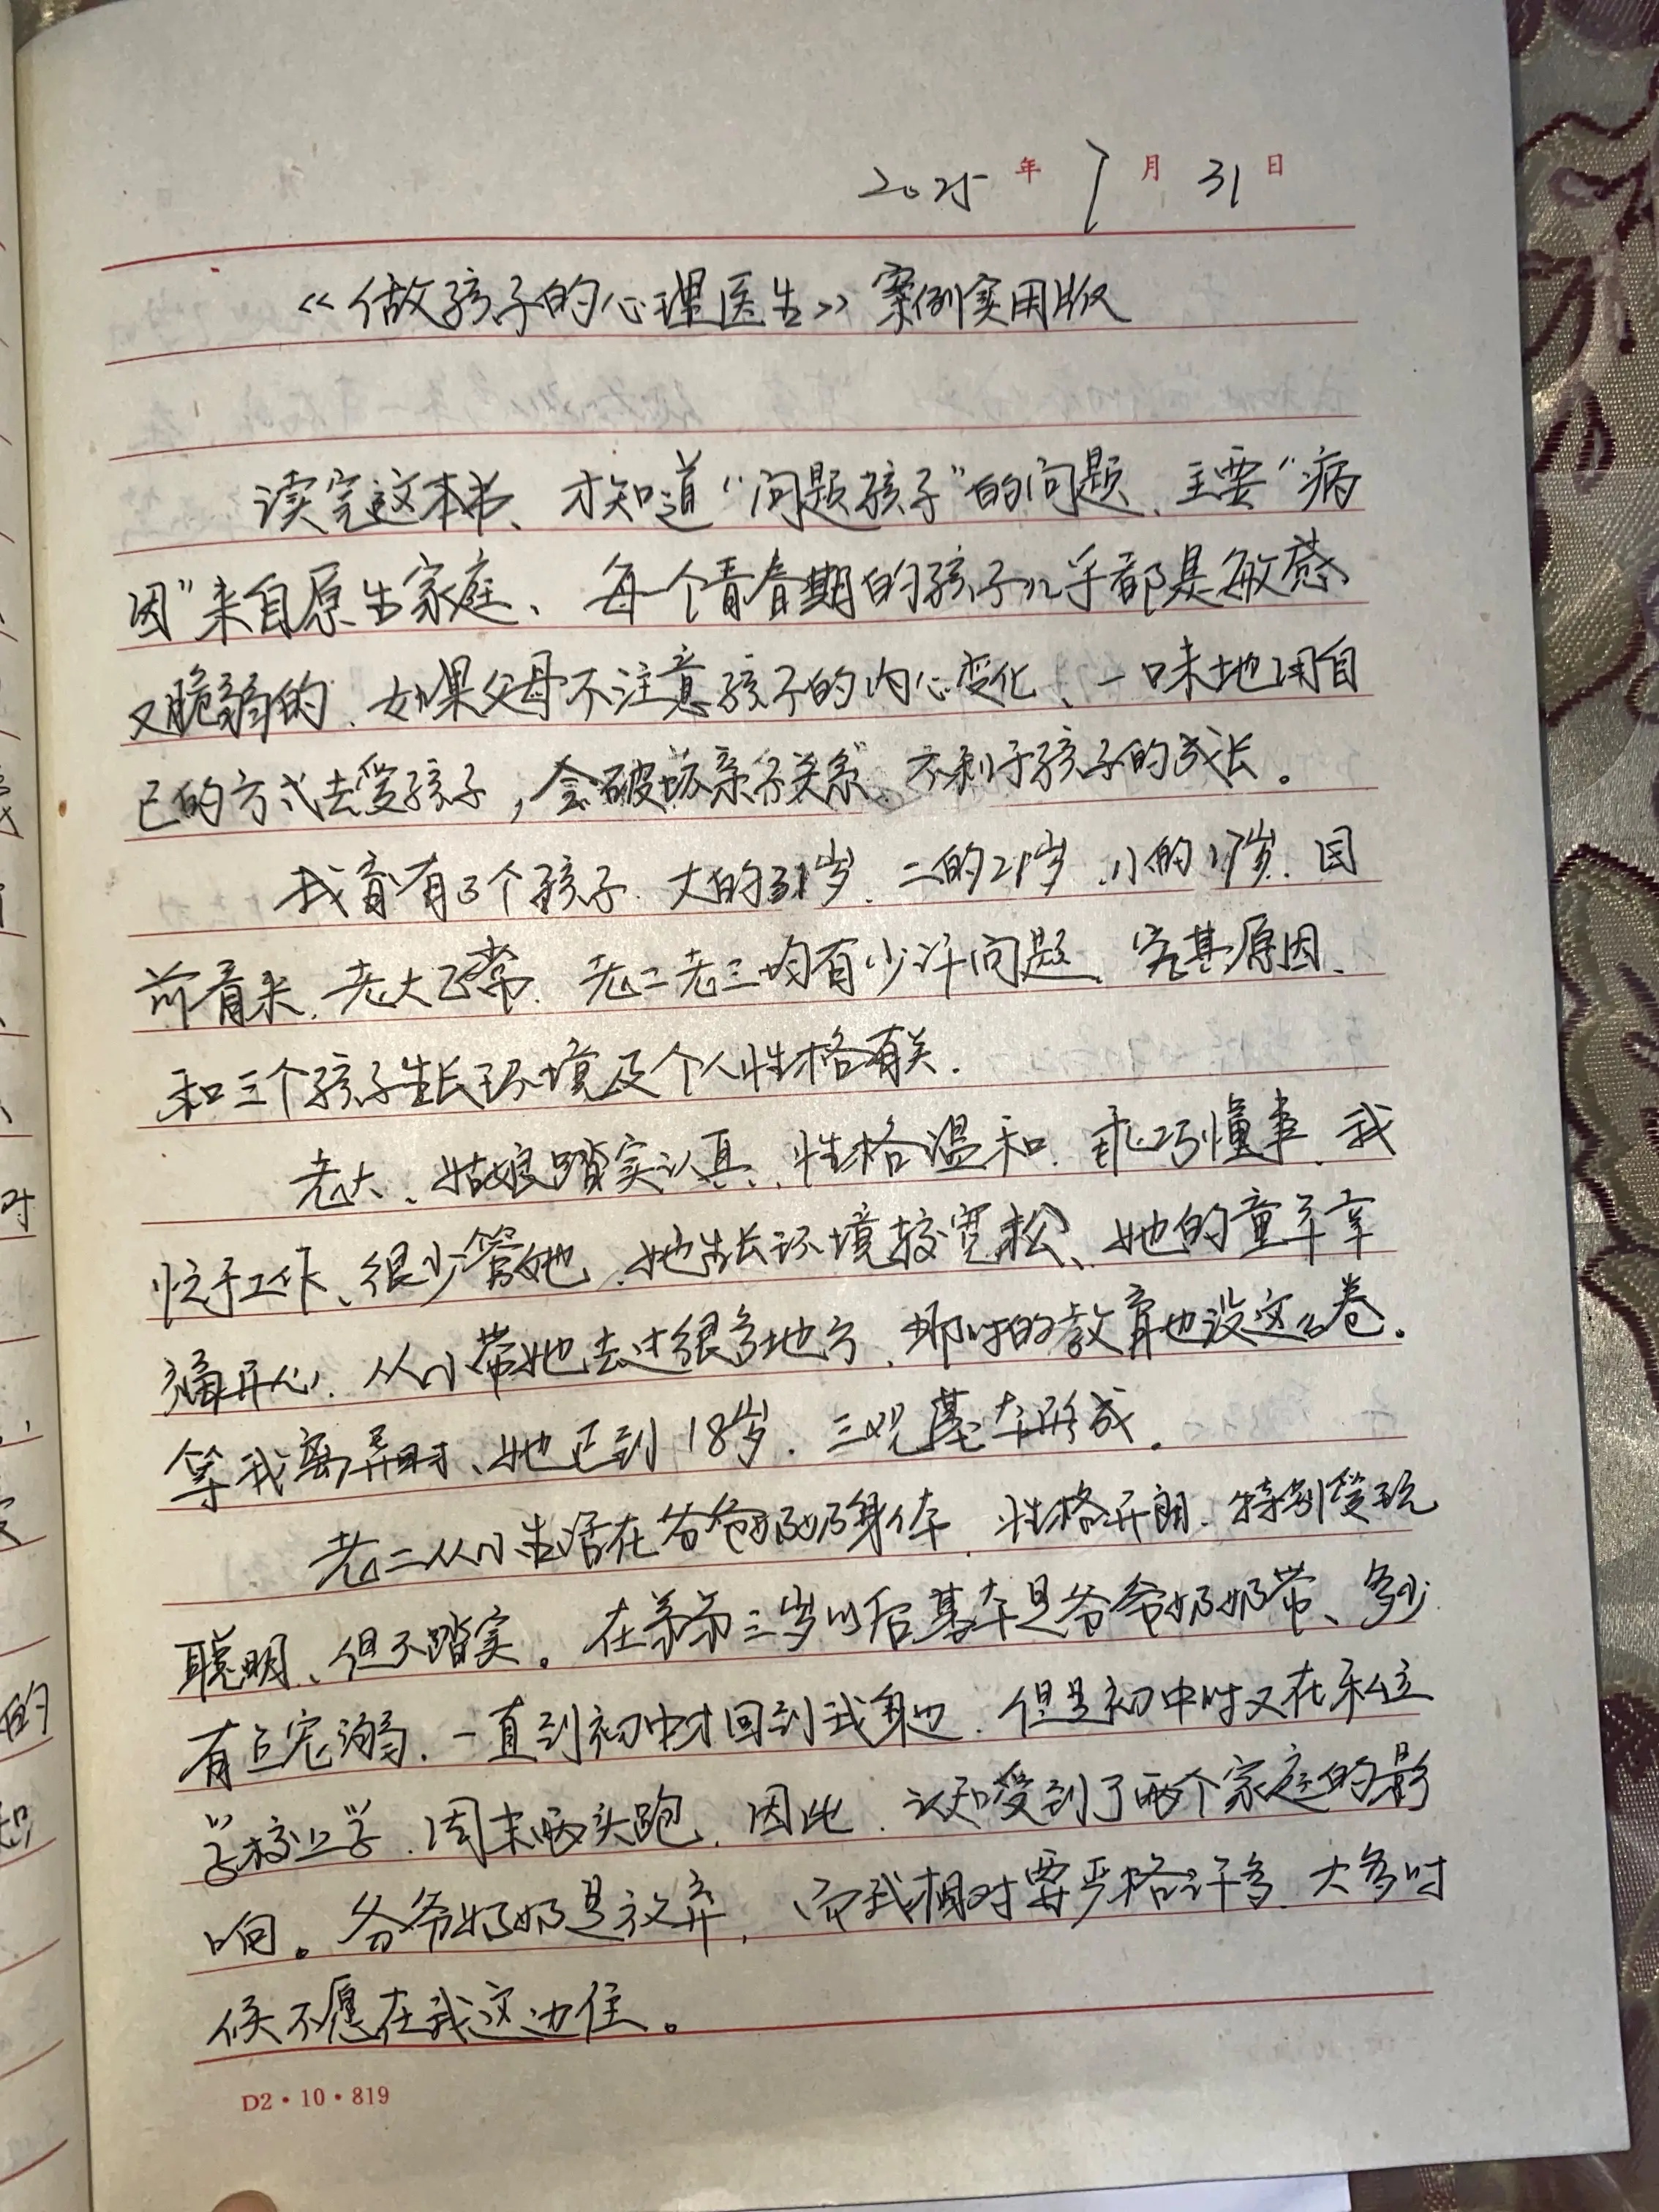 2025 年 7 月 31 日
《做孩子的心理医生》案例实用版
读完这本书、才知道“问题孩子”的问题、主要“病
因”来自原生家庭、每个青春期的孩子几乎都是敏感
又脆弱的、如果父母不注意孩子的内心变化、一味地用自
己的方式去爱孩子，会破坏亲子关系、不利于孩子的成长。
我育有3个孩子、大的31岁、二的21岁、小的17岁、目
前看来、老大正常、老二老三均有少许问题、究其原因、
和三个孩子生长环境及个人性格有关.
老大、姑娘踏实认真、性格温和、乖巧懂事、我
忙于工作、很少管她、她生长环境较宽松、她的童年幸
福开心、从小带她去过很多地方、那时的教育也没这么卷.
等我离异时、她已到18岁、三观基本形成.
老二从小生活在爷爷奶奶身体、性格开朗、特别爱玩
聪明、但不踏实。在弟弟三岁以后基本是爷爷奶奶带、多少
有点宠溺、一直到初中才回到我身边、但是初中时又在私立
学校上学、周末两头跑、因此、认知受到了两个家庭的影
响。爷爷奶奶是放弃、而我相对要严格许多、大多时
候不愿在我这边住。
D2·10·819